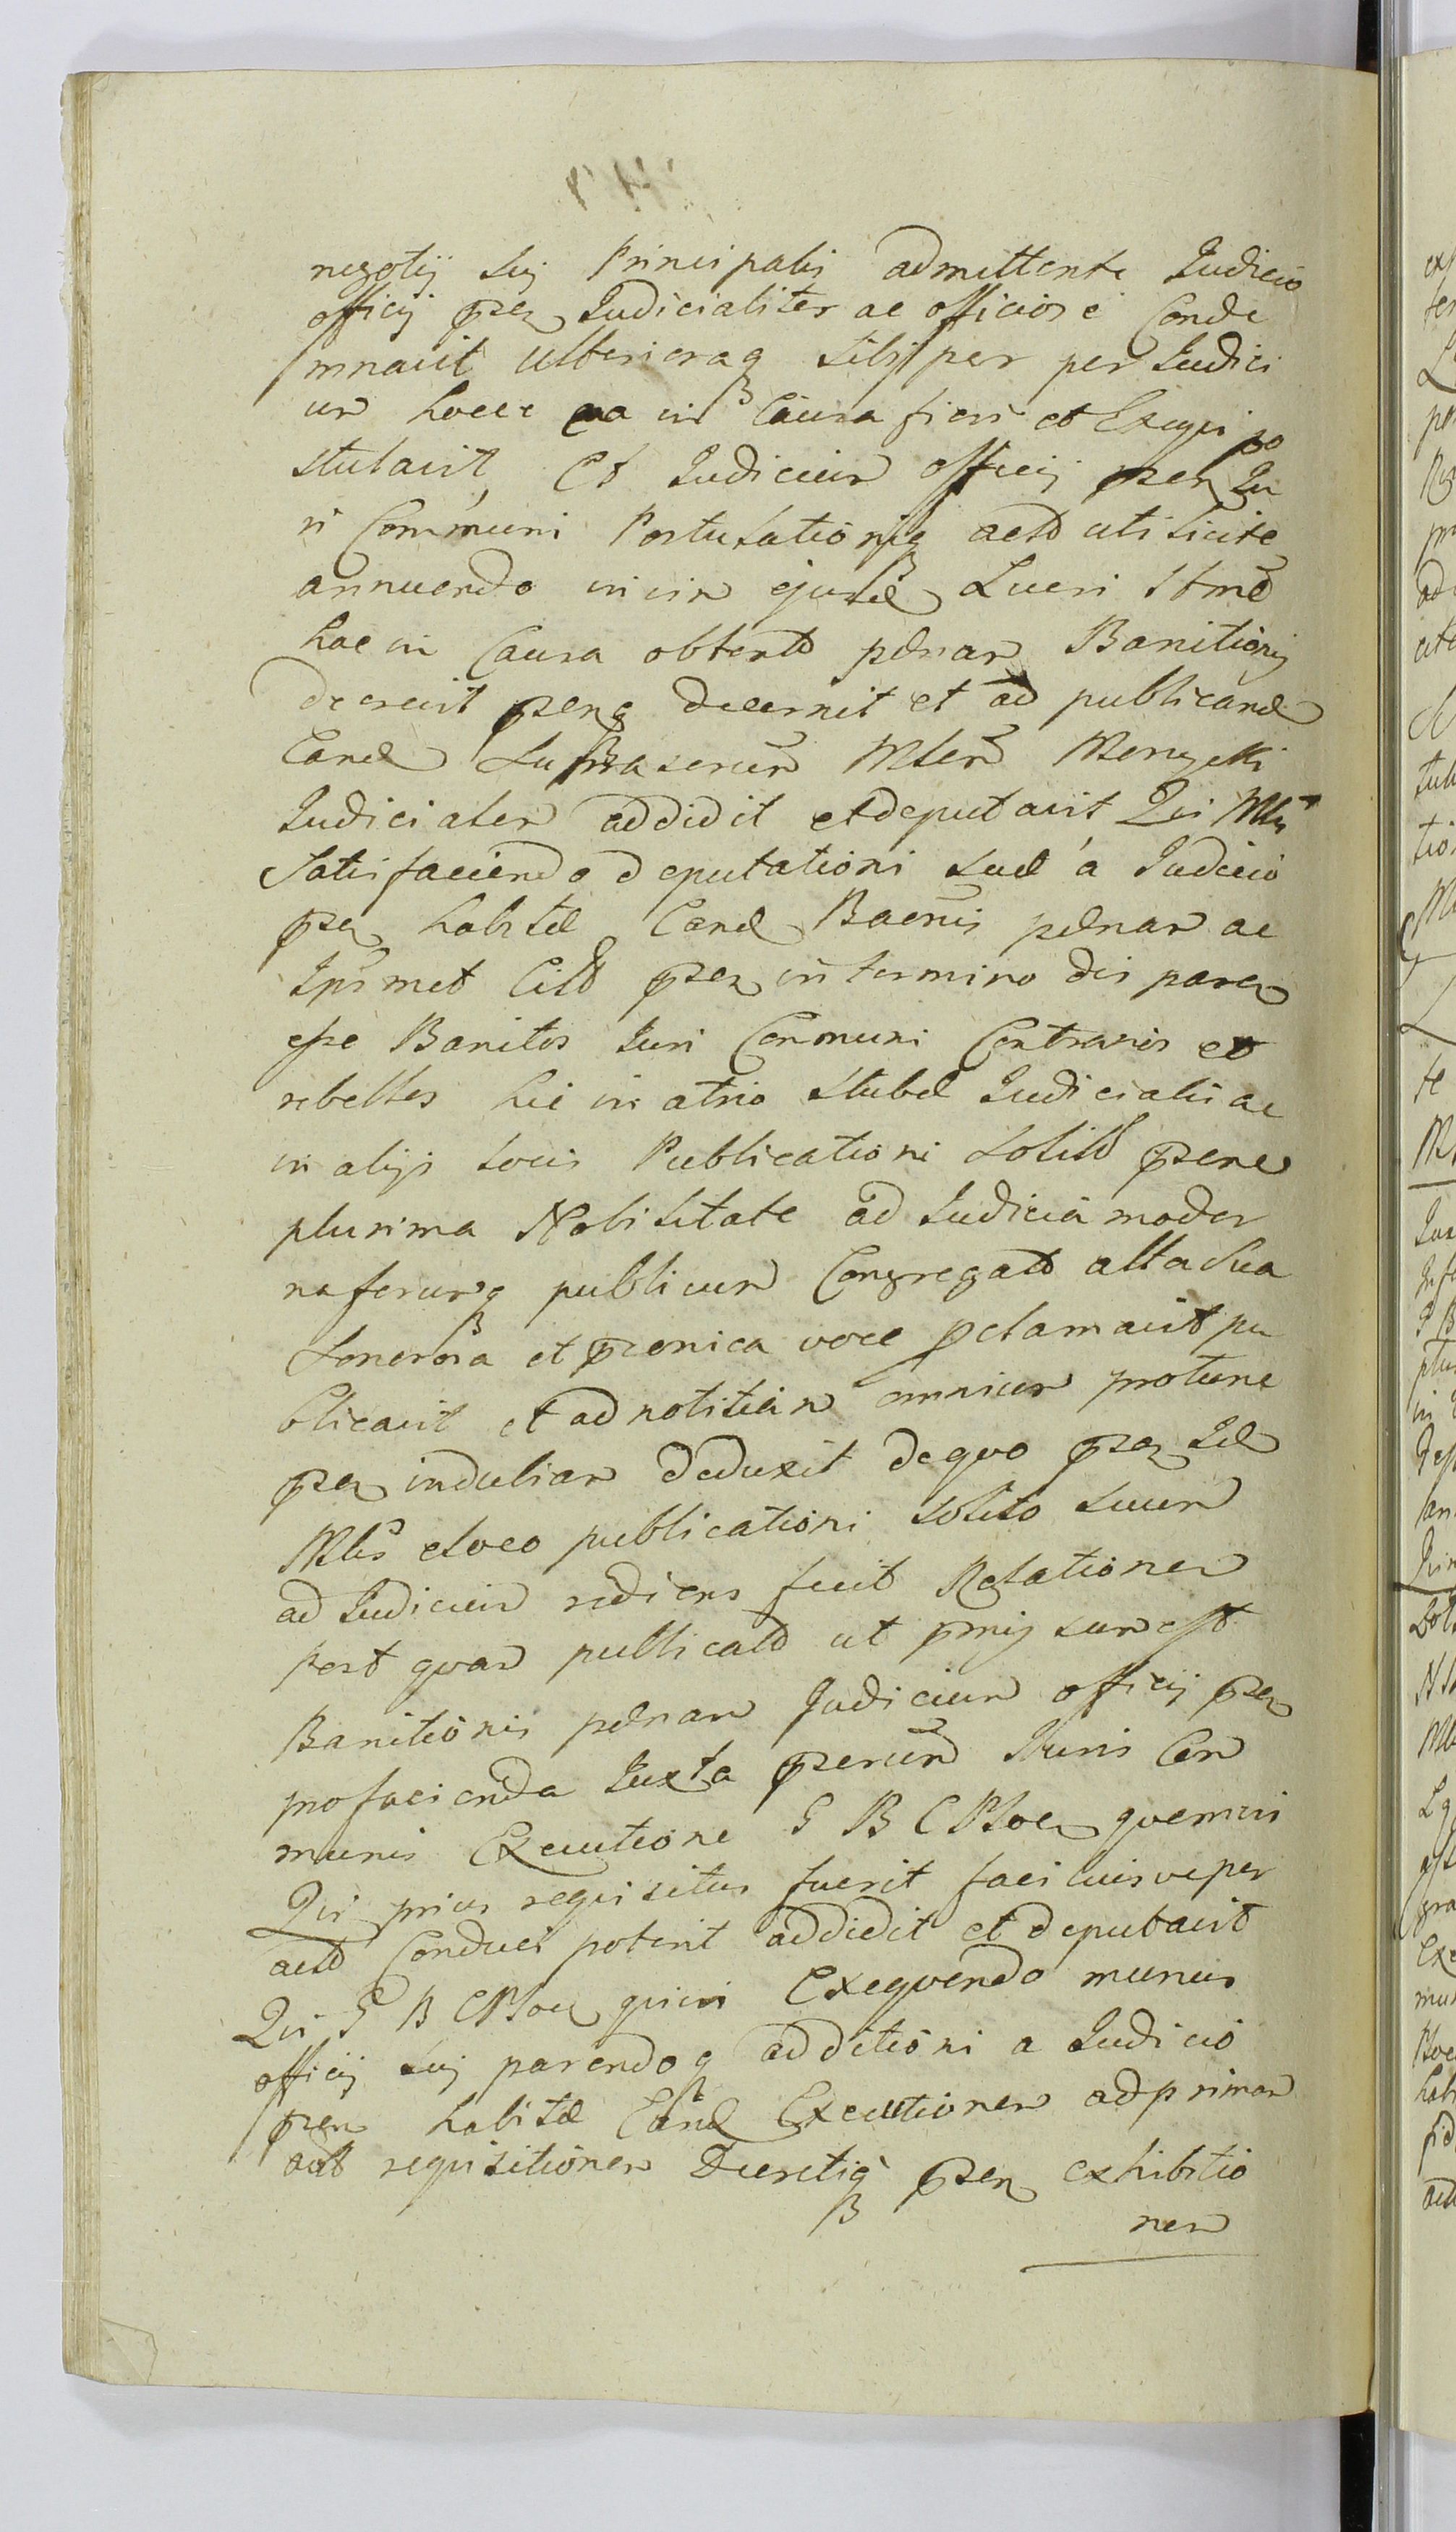 negotij sui Principalis admittente Judicio
officij psen Judicialiter ac officiose Conde
mnavit ulterioraq sibi per per Judici
um hocce ea in Causa fieri et Exequi po
stulavit, Et Judicium officij psen Ju
ri Communi Postulationiq actor uti licite
annuendo in vim ejusd Lucri
hac in Causa obtent pænam Banitionis
decrevit psenq decernit et ad publicand
Eand Suprascrium Mlem
Judicialem addidit et deputavit Qui Mlis
Satisfaciendo deputationi suæ a Judicio
psen habitæ Eand Baenis pænam ac
Ipsmet Cit psen in termino dei paren
esse Banitos Juri Communi Contrarios et
rebelles hic in atrio stubæ Judicialis ac
in alijs locis Publicationi solit psene
plurima Nobilitate ad Judicia moder
na forumq publicum Congregat alta sua
sonorosa et preonica voce pclamavit pu
blicavit et ad notitiam omnium protunc
psen indubiam deduxit de quo psen Id
Mlis e loco publicationi solito suum
ad Judicium rediens fecit Relationem
post quam publicat ut pmissum est
Banitionis pænam Judicium officij psen
pro facienda Juxta pserum Juris Com
munis Executione G B CPloen quemvis
Qui prius requisitus fuerit faci cuisve per
act Conduci poterit addidit et deputavit
Qui G B CPloen quivis Exequendo munus
officij sui parendoq additioni a Judicio
psen habitæ Eand Executionem ad primam
act requisitionem Decretiq psen exhibitio
nem